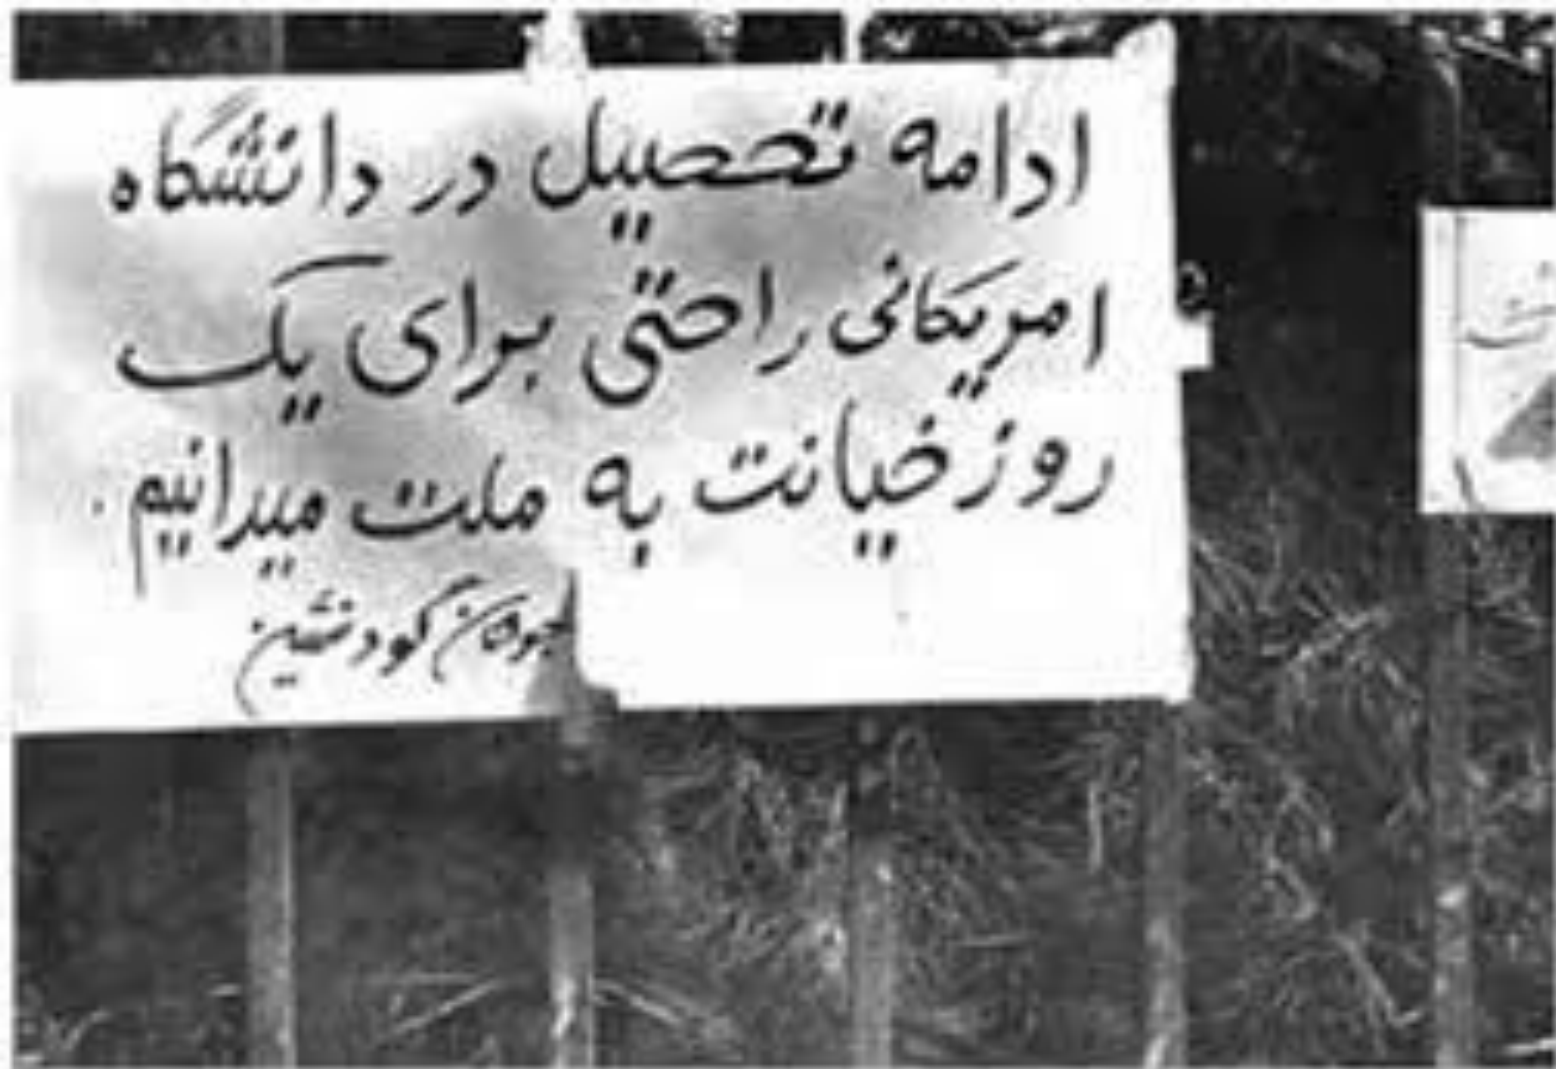 ادامه تحصیل در دانشگاه
امریکائی را حتی برای یک
روز خیانت به ملت میدانیم.
گودنشین